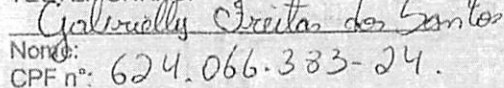 Gabrielly Freitas dos Santos
Nome:
CPF nº: 624.066.383-24.